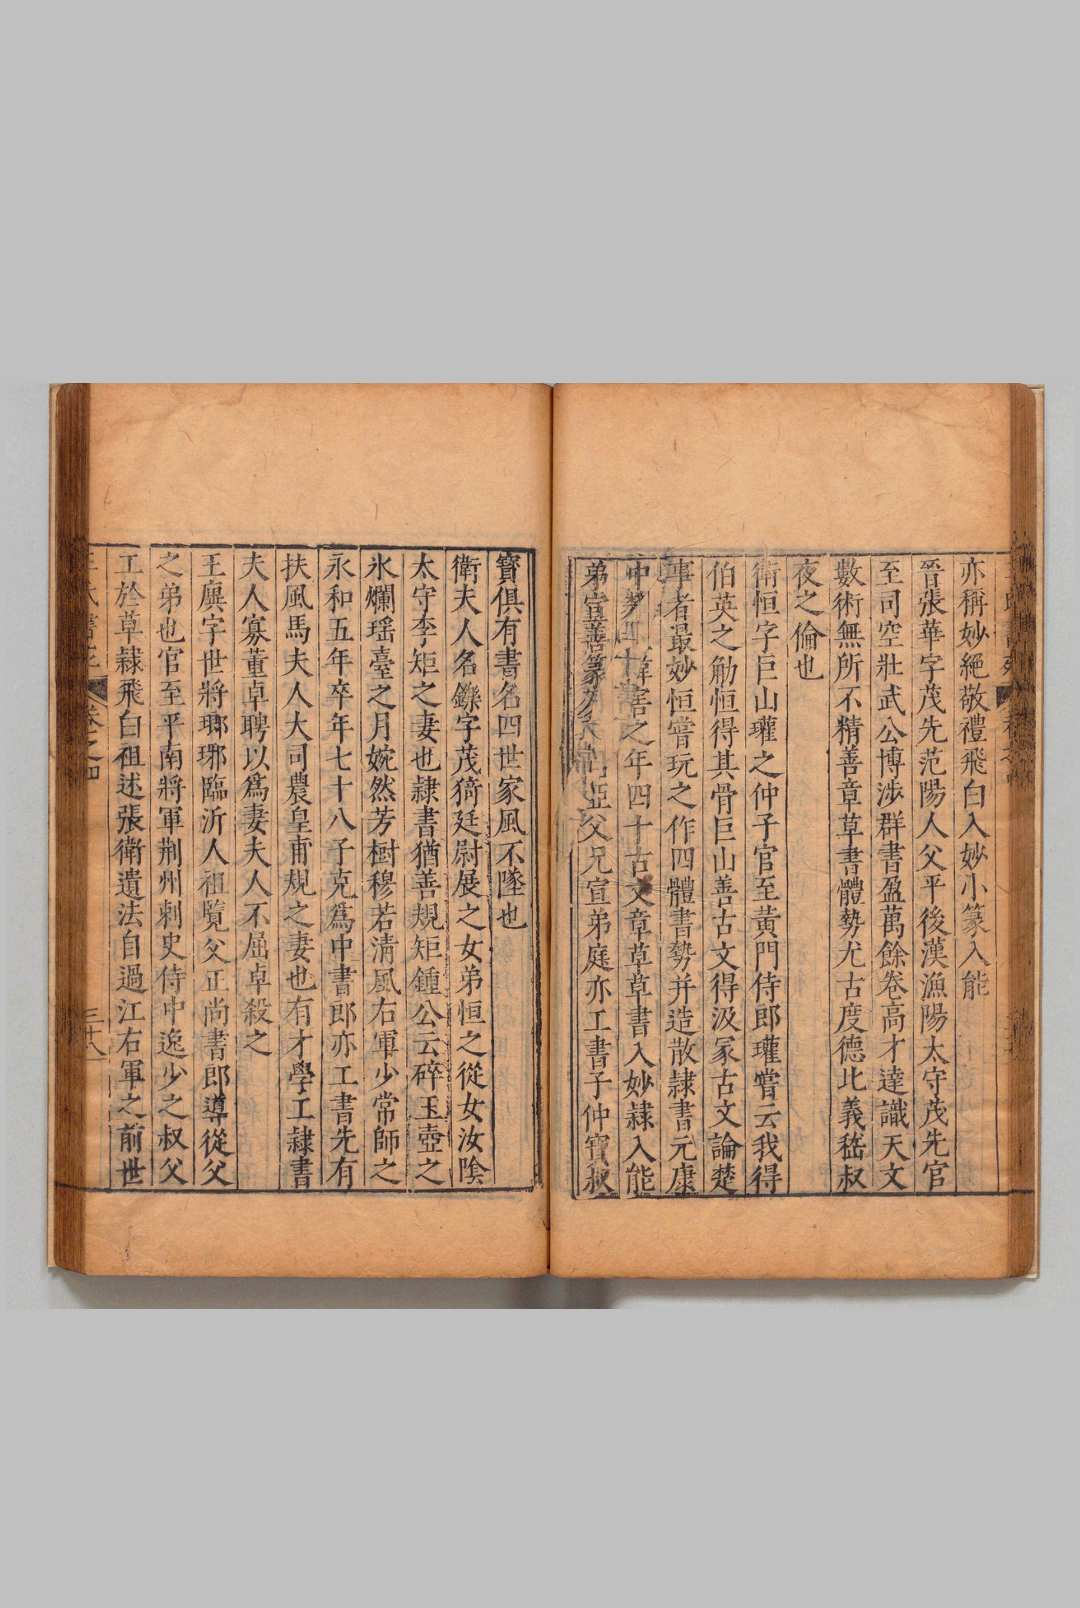 亦稱妙絕敬禮飛白入妙小篆入能
晉張華字茂先范陽人父平後漢漁陽太守茂先官
至司空壯武公博涉群書盈萬餘卷高才達識天文
數術無所不精善章草書體勢尤古度德比義嵇叔
夜之倫也
衛恒字巨山瓘之仲子官至黃門侍郎瓘嘗云我得
伯英之觔恒得其骨巨山善古文得汲冡古文論楚
事者最妙恒嘗玩之作四體書勢并造散隷書元康
中 害之年四十古文章草草書入妙隷入能
弟宣善篆 父兄宣弟庭亦工書子仲寶叔
寶俱有書名四世家風不墜也
衛夫人名鑠字茂猗廷尉展之女弟恒之從女汝隂
太守李矩之妻也隷書猶善規矩鍾公云碎玉壺之
氷爛瑶臺之月婉然芳樹穆若清風右軍少常師之
永和五年卒年七十八子克爲中書郎亦工書先有
扶風馬夫人大司農皇甫規之妻也有才學工隷書
夫人寡董卓聘以爲妻夫人不屈卓殺之
王廙字世將瑯琊臨沂人祖覽父正尚書郎導從父
之弟也官至平南將軍荆州刺史侍中逸少之叔父
工於草隷飛白祖述張衛遺法自過江右軍之前世
王氏書苑 卷之四 三十八